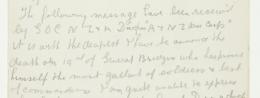 The following message have been received
by G O C N Z & A Division A & N Z Army Corps
It is with the deepest I have to announce the
death on 19th of General Bridges who has proved
himself the most gallant of soldiers & best
of commanders I am quite unable to express